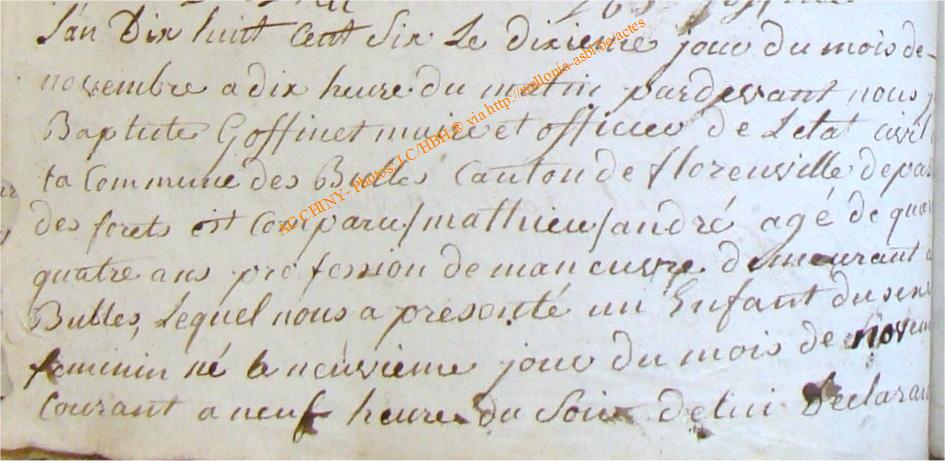 L'an Dix huit cent Six Le dixieme jour du mois de
novembre a dix heure du matin pardevant nous
Baptiste Goffinet maire et officier de Letat civil
la Commune des Bulles Canton de florenville depar
des forets est comparu / mathieu / andré agé de quar
quatre ans profession de maneuvre demeurant a
Bulles, Lequel nous a presenté un Enfant du sexe
feminin né le neuvieme jour du mois de novem
Courant a neuf heure du Soir de lui Declarant
AC CHINY- Photos LC/HBH © via http://wallonia-asbl.be/actes